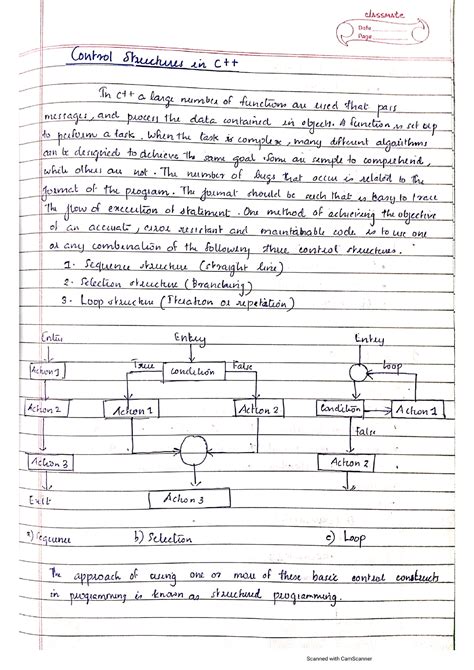 classmate
Date
Page
Control Structures in C++
In C++ a large number of functions are used that pass
messages, and process the data contained in objects. A function is set up
to perform a task. When the task is complex, many diffrent algorithms
can be designed to achieve the same goal. Some are simple to comprehend,
while others are not. The number of bugs that occur is related to the
format of the program. The format should be such that is easy to trace
the flow of execution of statement. One method of achieving the objective
of an accurate, error resistant and maintainable code is to use one
or any combination of the following three control structures.
1. Sequence structure (straight line)
2. Selection structure (Branching)
3. Loop structure (Iteration or repetation)
Enter Entry Entry
Action 1 True condition False Loop
Action 2 Action 1 Action 2 Condition Action 1
False
Action 3 Action 2
Exit Action 3
a) Sequence b) Selection c) Loop
The approach of using one or more of these basic control constructs
in programming is known as structured programming.
Scanned with CamScanner